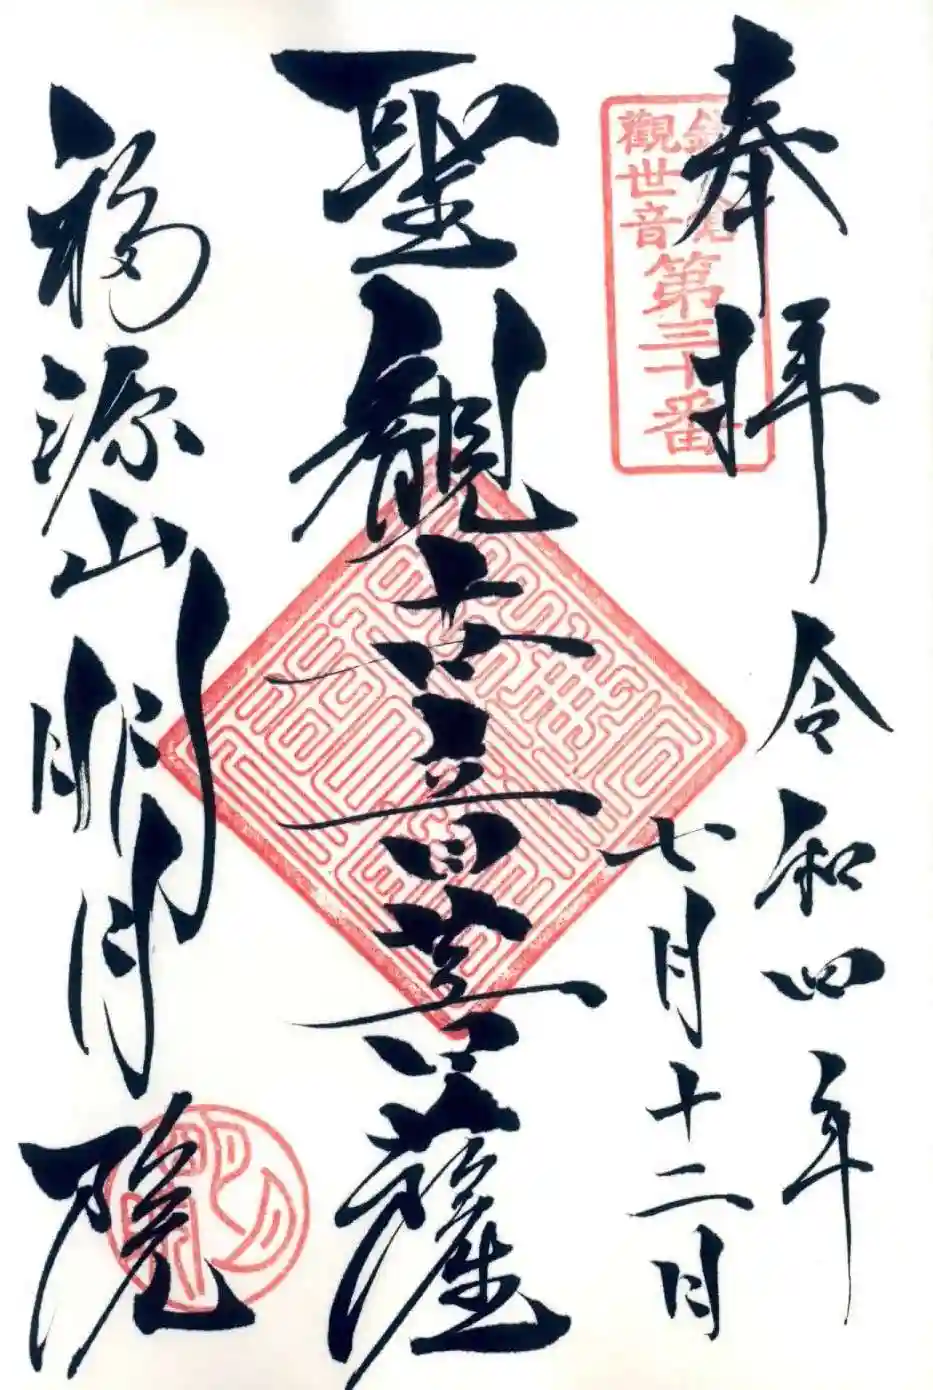 奉拝
鎌倉
觀世音
第三十番
令和四年
七月十二日
聖観世音菩薩
福源山明月院